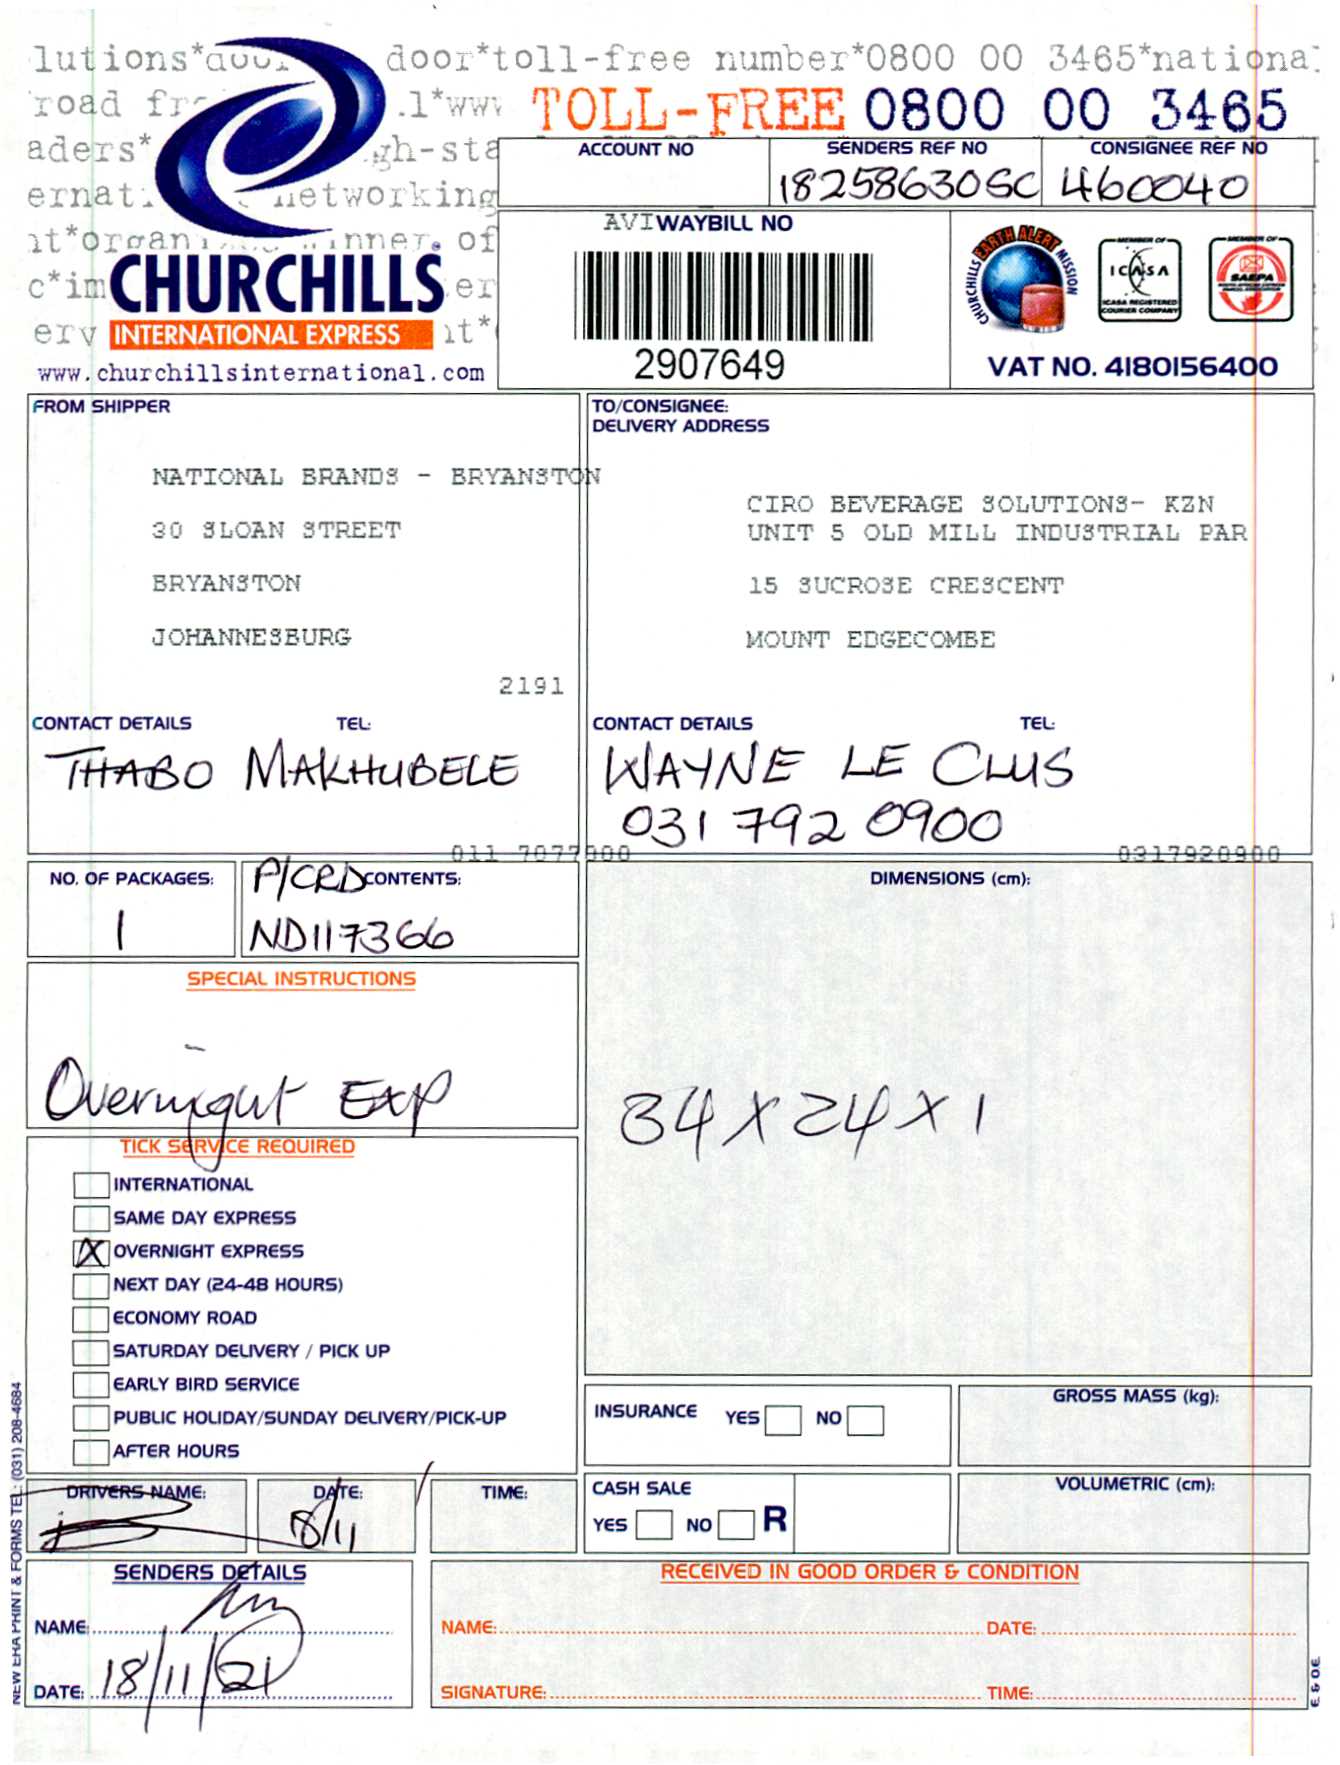 lutions*door door*toll-free number*0800 00 3465*nationa
road fr .l*www TOLL-FREE 0800 00 3465
aders* gh-sta
ACCOUNT NO SENDERS REF NO CONSIGNEE REF NO
18258630SC 460040
ernat networking
nt*organi winner of
AVIWAYBILL NO
CHURCHILLS EARTH ALERT MISSION
MEMBER OF ICASA ICASA REGISTERED COURIER COMPANY
MEMBER OF SAEPA
c*im CHURCHILLS er
erv INTERNATIONAL EXPRESS nt*
www.churchillsinternational.com
2907649
VAT NO. 4180156400
FROM SHIPPER
NATIONAL BRANDS - BRYANSTON
30 SLOAN STREET
BRYANSTON
JOHANNESBURG
2191
CONTACT DETAILS TEL:
THABO MAKHUBELE
011 7077000
TO/CONSIGNEE:
DELIVERY ADDRESS
CIRO BEVERAGE SOLUTIONS- KZN
UNIT 5 OLD MILL INDUSTRIAL PAR
15 SUCROSE CRESCENT
MOUNT EDGECOMBE
CONTACT DETAILS TEL:
WAYNE LE CLUS
031 792 0900
0317920900
NO. OF PACKAGES:
1
P/CRD CONTENTS:
ND117366
DIMENSIONS (cm):
34 X 24 X 1
SPECIAL INSTRUCTIONS
Overnight EXP
TICK SERVICE REQUIRED
INTERNATIONAL
SAME DAY EXPRESS
X OVERNIGHT EXPRESS
NEXT DAY (24-48 HOURS)
ECONOMY ROAD
SATURDAY DELIVERY / PICK UP
EARLY BIRD SERVICE
PUBLIC HOLIDAY/SUNDAY DELIVERY/PICK-UP
AFTER HOURS
INSURANCE YES NO
GROSS MASS (kg):
DRIVERS NAME: DATE: TIME:
18/11
CASH SALE
YES NO R
VOLUMETRIC (cm):
SENDERS DETAILS
NAME:
DATE: 18/11/21
RECEIVED IN GOOD ORDER & CONDITION
NAME: DATE:
SIGNATURE: TIME:
NEW ERA PRINT & FORMS TEL: (031) 208-4684
E. & O.E.